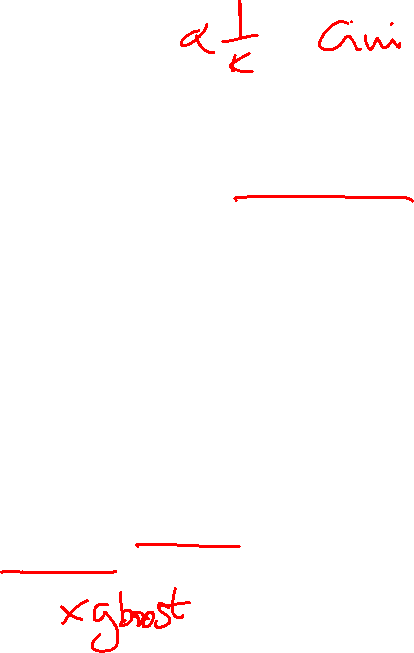 α 1/k Gini
xgboost